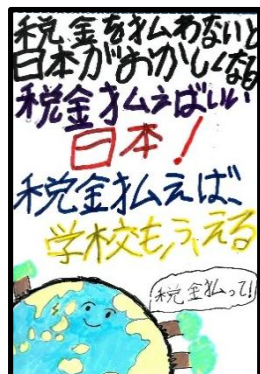 税金を払わないと
日本がおかしくなる
税金払えばいい
日本！
税金払えば、
学校もふえる
税金払って！